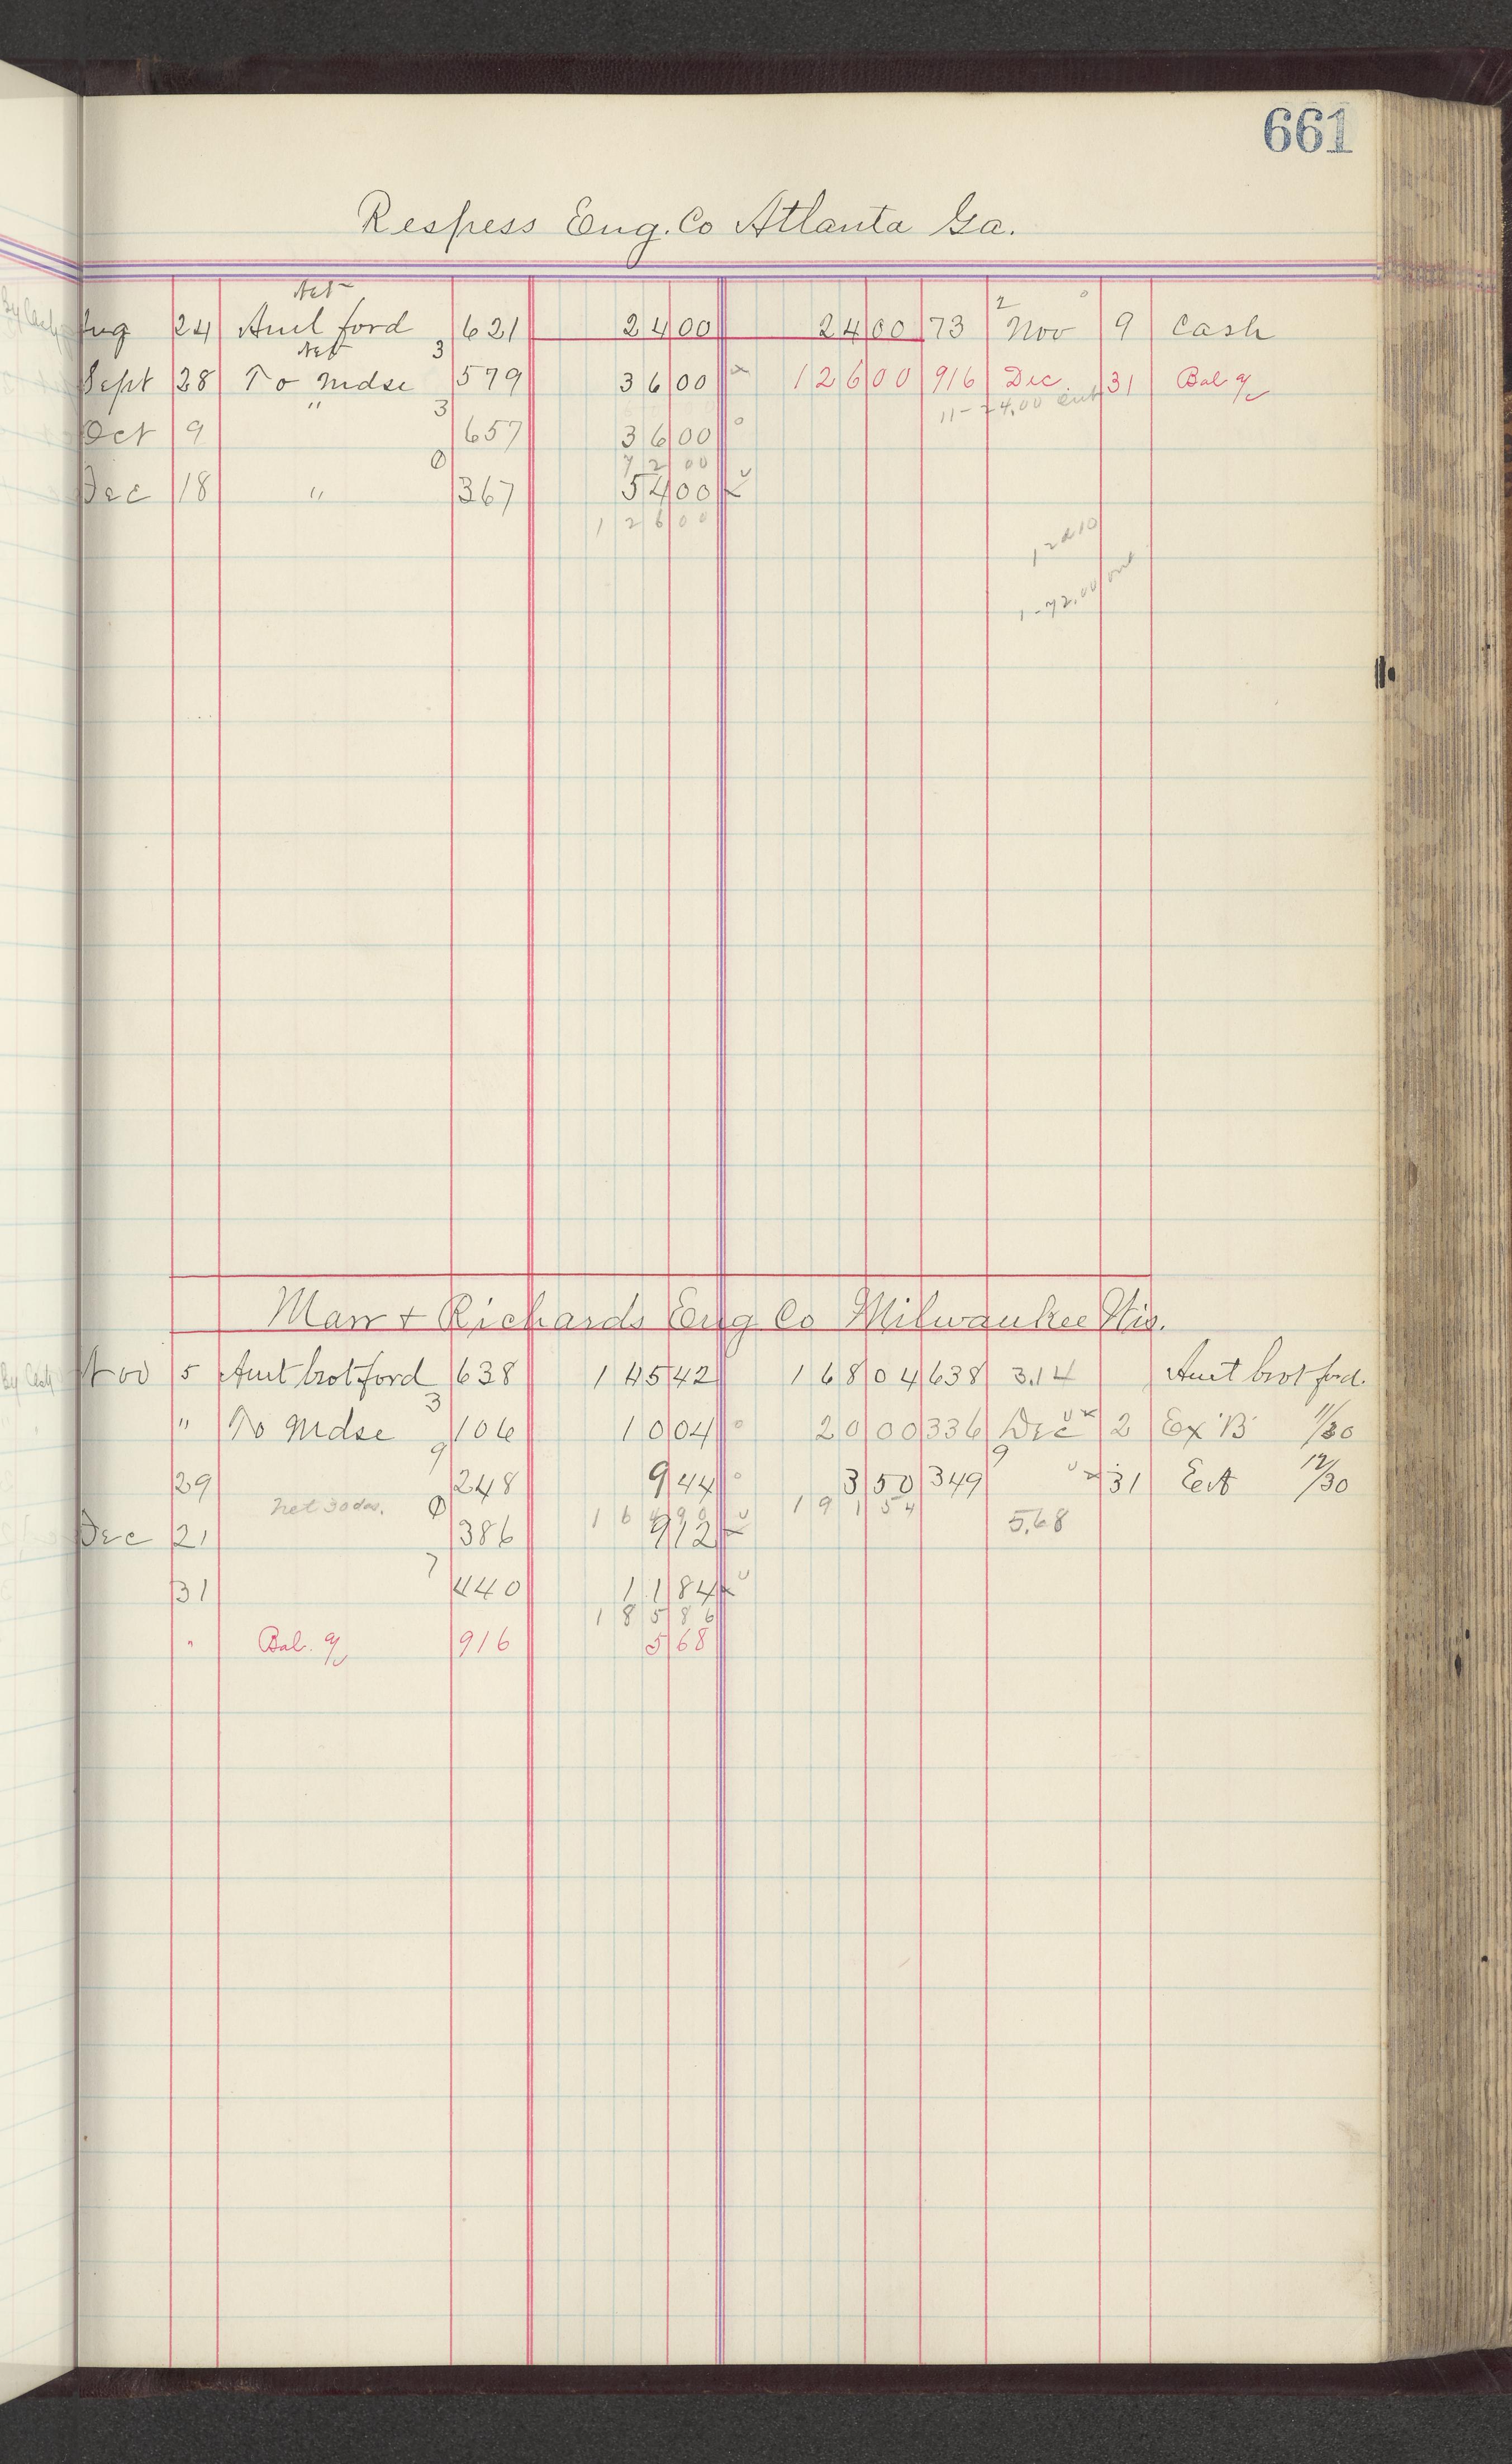 661
Respess Eng. Co Atlanta Ga.
Net
Aug 24 Amt ford 621 24 00 24 00 73 2 Nov 9 Cash
Net 3
Sept 28 To Mdse 579 36 00 x 126 00 916 Dec. 31 Bal a/c
" 3 11 - 24.00 out
Oct 9 657 36 00
0 72 00
Dec 18 " 367 54 00
126 00
1-72.00 out
Marr + Richards Eng Co Milwaukee Wis.
Nov 5 Amt brot ford 638 145 42 168 04 638 3.14 Amt brot ford.
3
" To Mdse 106 10 04 20 00 336 Dec 2 Ex "B" 11/30
9 9
29 248 9 44 3 50 349 31 Ex A 12/30
net 30 das. 0 164 90 191 54
Dec 21 386 9 12 5.68
7
31 440 11 84
185 86
" Bal. a/c 916 5 68